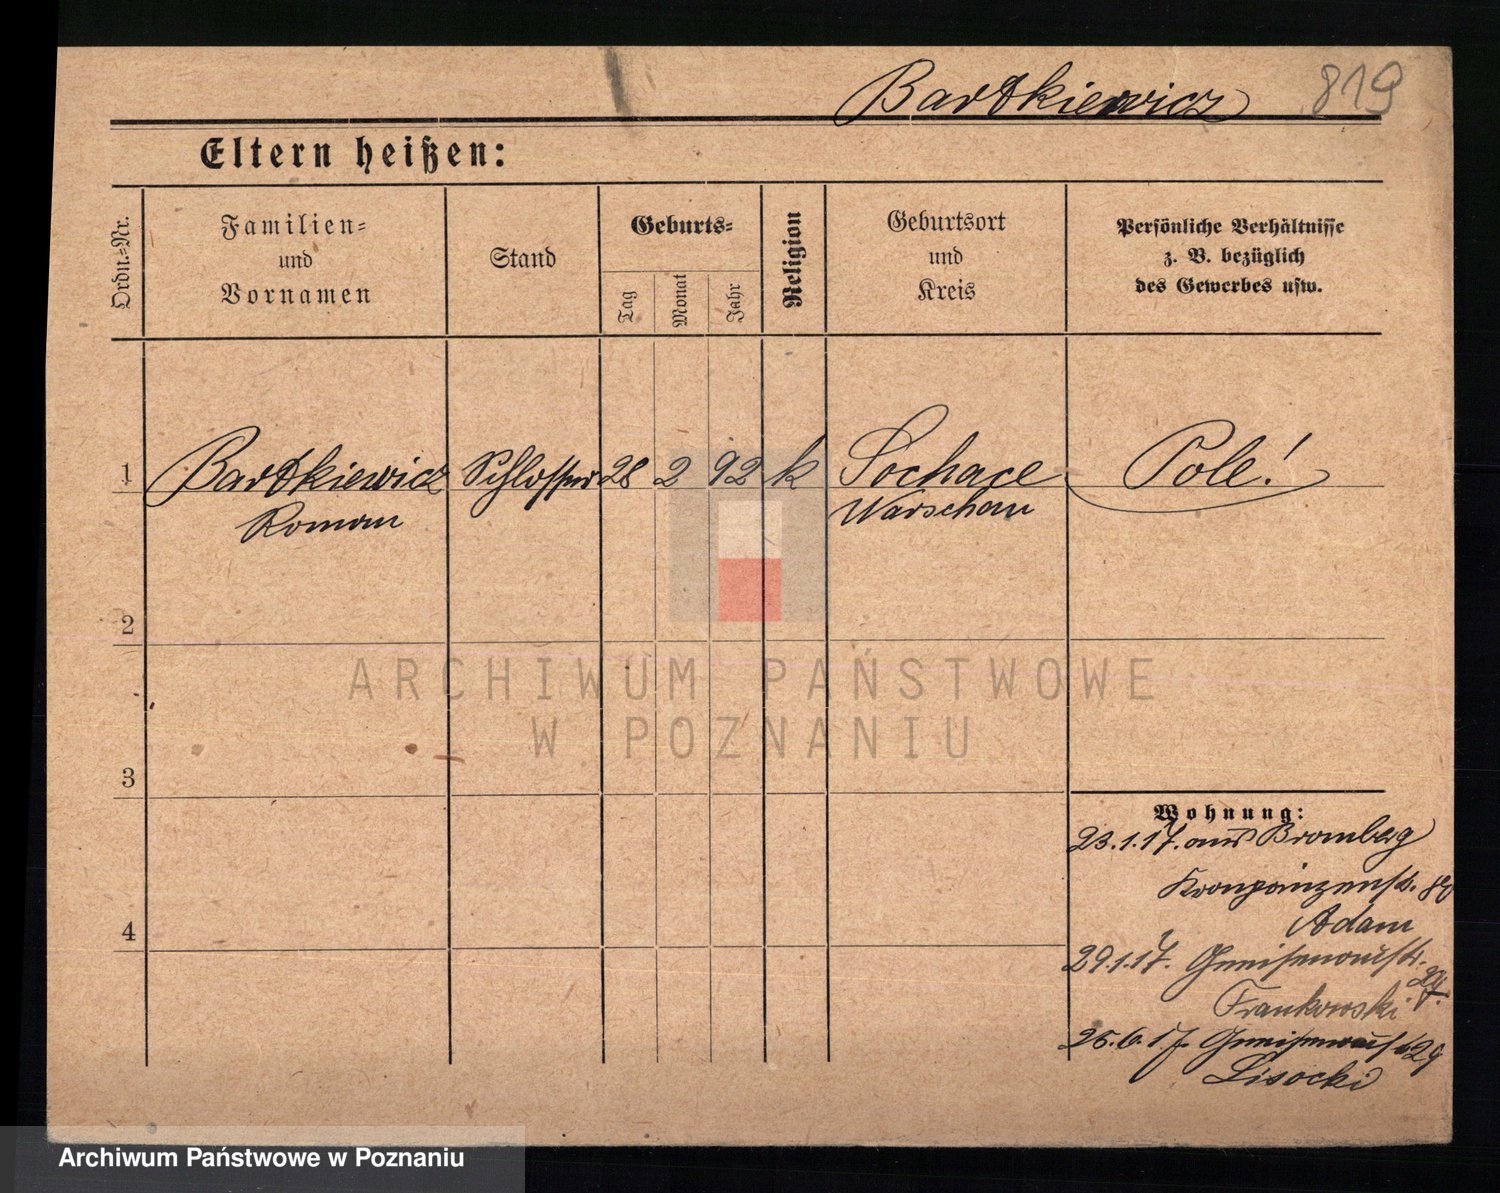 Bartkiewicz 819
Eltern heißen:
Ordn.=Nr.
Familien=
und
Vornamen
Stand
Geburts=
Tag
Monat
Jahr
Religion
Geburtsort
und
Kreis
Persönliche Verhältnisse
z. B. bezüglich
des Gewerbes usw.
1 Bartkiewicz Schlosser 28 2 92 k Sochace Pole!
Roman Warschau
2
3
4
Wohnung:
23.1.17. aus Bromberg
Kronprinzenstr.
Adam
29.1.17. Gneisenaustr.
Frankowski
25.6.17. Gneisenaustr 29
Lisocki
ARCHIWUM PAŃSTWOWE
W POZNANIU
Archiwum Państwowe w Poznaniu